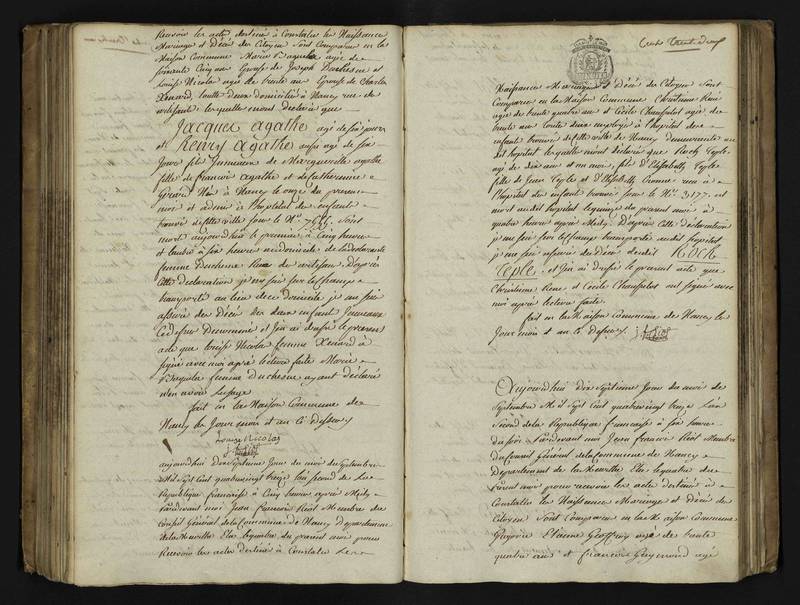 Recevoir les actes destinés à Constater les Naissances
Mariages et Décès des Citoyens Sont Comparues en la
Maison Commune Marie Baquela agée de
soixante Cinq ans Epouse de Joseph Duchesne et
Louise Nicolas agée de trente ans Epouse de Charles
Xenard, toutte deux domiciliés à Nancy rue des
artisans lesquelles m'ont déclaré que
Jacques agathe agé de six jours
et Henry Agathe aussi agé de six
Jours fils Jumeaux de Marguerite agathe
fille de francois agathe et de Catherine
Née à Nancy le onze du present
mois et admis à l'hopital des enfants
trouvés de cette ville sous le No. Sont
mort aujourd'huy le premier à Cinq heures
et l'autre à six heures au domicile de la declarante
femme Duchesne Rue des artisans. D'après
cette declaration je me suis sur le champ
transporté au lieu de ce domicile je me suis
assuré des Décès des deux enfants Jumeaux
Cy dessus Denommés et j'ai dressé le present
acte que Louise Nicolas femme Xenard à
signé avec moi après lecture faite Marie
Baquela femme Duchesne ayant déclaré
n'en avoir l'usage
fait en la Maison Commune de
Nancy les Jour mois et an Cy dessus
Louise Nicolas
aujourd'hui dix Septieme Jour du mois de Septembre
Mil Sept Cent quatre vingt treize l'an second de la
Republique francaise à Cinq heures après Midy
Pardevant moi Jean francois Riot Membre du
Conseil Général de la Commune de Nancy Departement
de la Meurthe Elu le quatre du present mois pour
Recevoir les actes destinés à Constater les
Naissances Mariages et Décès des Citoyens Sont
Comparus en la Maison Commune Chretienne René
agée de trente quatre ans et Cécile Chaufselot agée de
trente ans toute deux employées à l'hopital des
enfants trouvés de cette ville de Nancy, demeurante au
dit hopital lesquelles m'ont déclaré que Roch Teple
agé de dix ans et un mois, fils d'Elisabeth Teple
fille de Jean Teple et d'Elisabeth recu à
l'hopital des enfants trouvés sous le No. 3177. est
mort audit hopital le quinze du present mois à
quatre heures après Midy. D'après cette declaration
je me suis sur le champ transporté audit hopital
je me suis assuré du Décès dudit Roch
Teple, et j'ai dressé le present acte que
Chretienne René et Cécile Chaufselot ont signé avec
moi après lecture faite.
fait en la Maison Commune de Nancy les
Jour mois et an Cy dessus
Aujourd'hui dix Septieme Jour du mois de
Septembre Mil Sept Cent quatre vingt treize l'an
Second de la Republique francaise à six heures
du soir Pardevant moi Jean francois Riot Membre
du Conseil Général de la Commune de Nancy
Departement de la Meurthe Elu le quatre du
present mois pour recevoir les actes destinés à
Constater les Naissances Mariages et Décès des
Citoyens Sont Comparus en la Maison Commune
Etienne Geoffroy agé de trente
quatre ans et francois Guymond agé